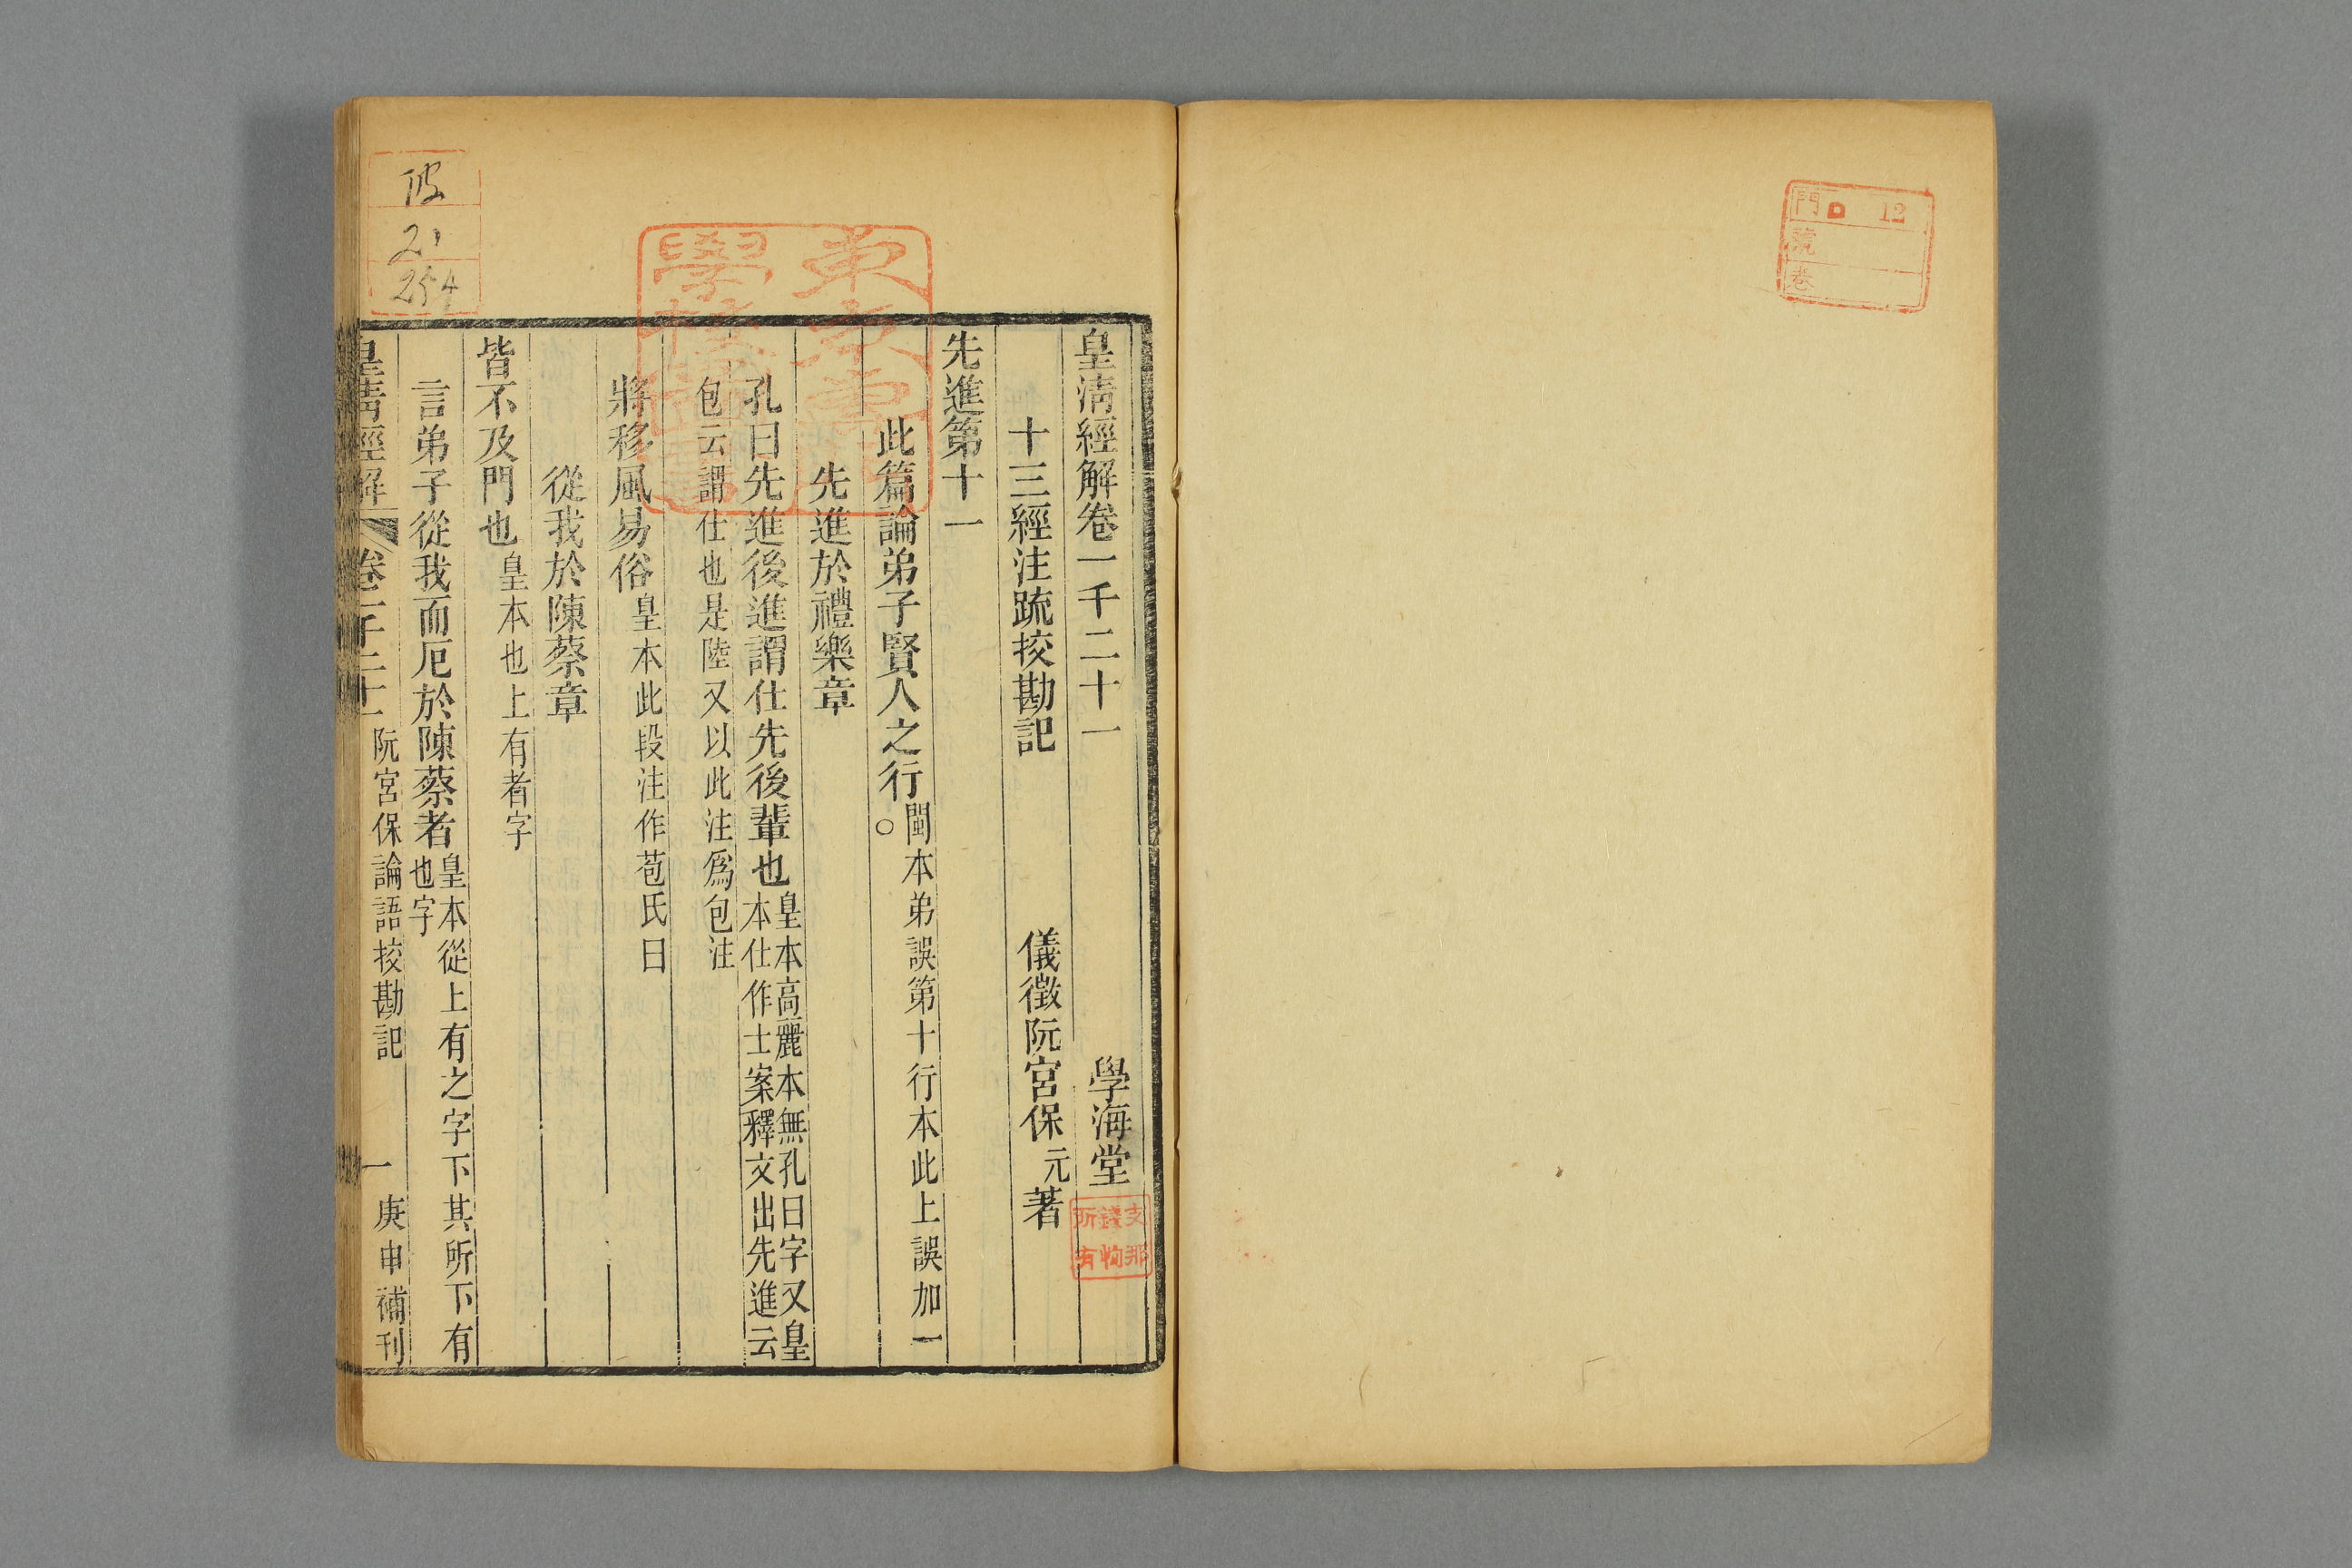 門 D 12
號
卷
皇清經解卷一千二十一 學海堂
十三經注疏挍勘記 儀徵阮宮保元著
先進第十一
此篇論弟子賢人之行 閩本弟誤第十行本此上誤加一○
先進於禮樂章
孔曰先進後進謂仕先後輩也 皇本高麗本無孔曰字又皇本仕作士案釋文出先進云
包云謂仕也是陸又以此注爲包注
將移風易俗 皇本此段注作苞氏曰
從我於陳蔡章
皆不及門也 皇本也上有者字
言弟子從我而厄於陳蔡者 皇本從上有之字下其所下有也字
皇清經解 卷一千二十一 阮宮保論語挍勘記 一 庚申補刊
支那
錢恂
所有
21
254